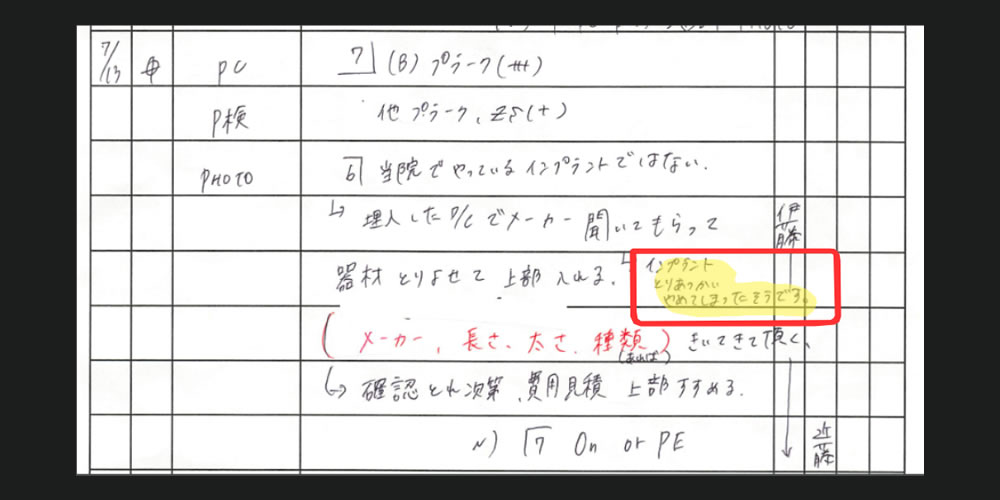 7/13 申 PC 7 (B) プラーク(卅)
P検 他プラーク、ZS(+)
PHOTO 6 当院でやっているインプラントではない.
↳ 埋入した D/C でメーカー 聞いてもらって 伊藤
器材 とりよせて 上部 入れる.
↳ インプラント
とりあつかい
やめてしまったそうです。
(メーカー、長さ、太さ、種類) きいてきて頂く、
(あれば)
↳ 確認とれ次第、費用見積 上部すすめる.
N) 7 On or PE 近藤